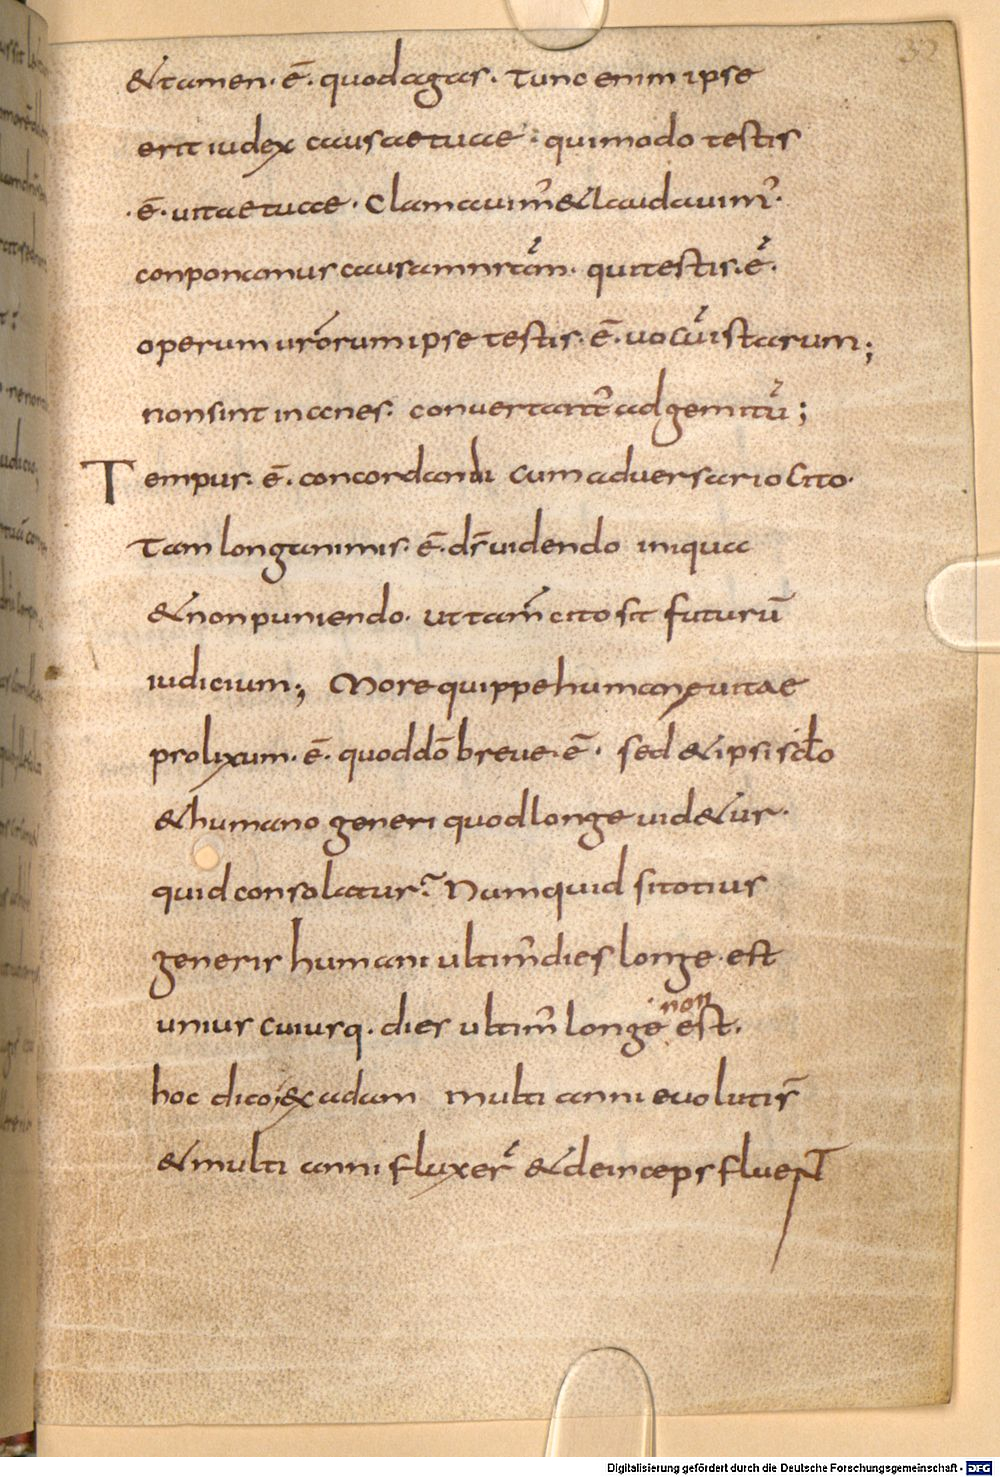 32
&tamen· ē· quodagas· Tunc enim ipse
erit iudex causaetuae· quimodo testis
·ē· uitaetuae· Clamauim᾽&laudauim᾽·
conponamus causamnrām· quitestis·ē·
operum urōrum ipse testis· ē· uocūistarum;
nonsint inanes· conuertant᾽adgemitū;
Tempus· ē· concordandi cumaduersario Cito·
Tam longanimis· ē· ds̄ uidendo iniqua
&nonpuniendo· ut tam̄ cito sit futurū
iudicium; More quippe humanę uitae
prolixum· ē· quoddō breue· ē· sed &ipsi sc̄lo
&humano generi quodlonge uid&ur·
quid consolatur? Numquid sitotius
generis humani ultim᾽dies longe est
unius cuiusq· dies ultim᾽ longe non est·
hoc dico; exadam multi anni euolutis̄
&multi anni fluxer̄ &deinceps fluent
Digitalisierung gefördert durch die Deutsche Forschungsgemeinschaft - DFG